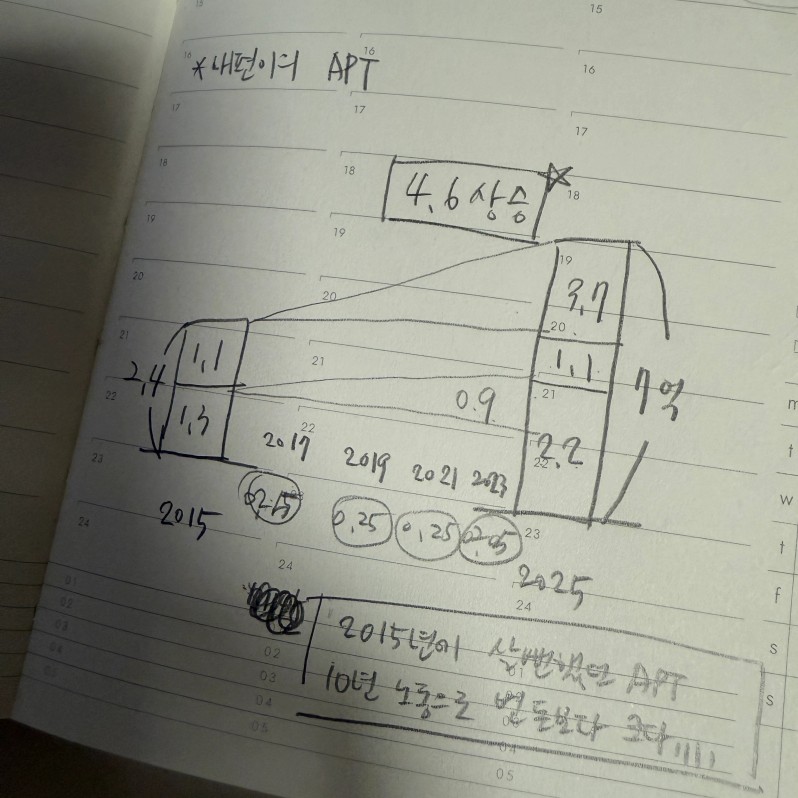 15
15
16
16
16
*내편이의 APT
17
17
17
18
18
18
4.6 상승
19
19
19
3.7
20
20
20
1.1
1.1
7억
21
21
21
2.4
0.9
22
22
22
1.3
2.2
2017
2019
2021
2023
23
23
2015
0.25
0.25
24
24
2025
24
2015년에 살뻔했던 APT
10년 노동으로 번 돈보다 크다!!!!!
01
02
03
04
05
01
02
03
04
05
04
05
m
t
w
t
f
s
s